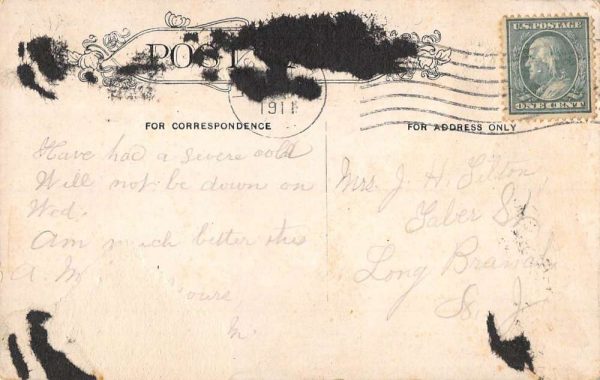 POST
U.S. POSTAGE
ONE CENT
1911
FOR CORRESPONDENCE
FOR ADDRESS ONLY
Have had a severe cold
Will not be down on
Wed.
Am much better this
A. M.
Yours,
M.
Mrs. J. H. Tilton
Taber St
Long Branch
N. J.